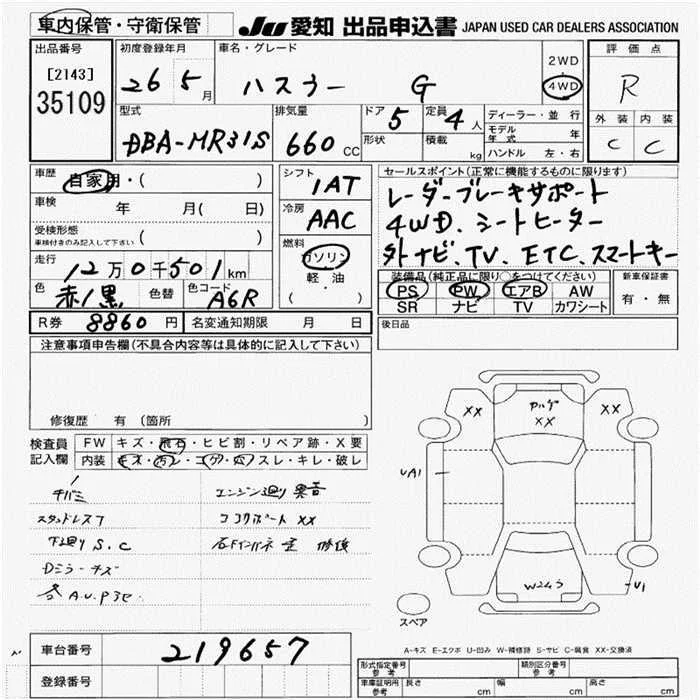 車内保管・守衛保管
JU 愛知 出品申込書 JAPAN USED CAR DEALERS ASSOCIATION
出品番号 [2143] 35109
初度登録年月 26 5月
車名・グレード ハスラー G
2WD 4WD
評価点 R
外装 C 内装 C
型式 DBA-MR31S
排気量 660 CC
ドア 5 定員 4人
形状 積載 kg
ディーラー・並行
モデル年式 年
ハンドル 左・右
車歴 自家用・( )
車検 年 月( 日)
受検形態 車検付きのみ記入して下さい ( )
走行 12万0千501km
色 赤/黒 色替 色コード A6R
シフト 1AT
冷房 AAC
燃料 ガソリン 軽・油 ( )
セールスポイント(正常に機能するものに限ります)
レーダーブレーキサポート
4WD、シートヒーター
外ナビ、TV、ETC、スマートキー
装備品(純正品に限り○をつけてください)
PS PW エアB AW
SR ナビ TV カワシート
新車保証書 有・無
R券 8860円 名変通知期限 月 日
後日品
注意事項申告欄(不具合内容等は具体的に記入して下さい)
修復歴 有 (箇所 )
検査員記入欄
FW キズ・飛石・ヒビ割・リペア跡・X要
内装 キズ・汚レ・コゲ・穴・スレ・キレ・破レ
エンジン廻り 異音
スタッドレス7
コアサポート XX
下廻り S.C
右Fインパネ 歪 修後
Dミラーキズ
各A.U.P3セ.
XX
XX
XX
UA1
W2
U1
スペア
A-キズ E-エクボ U-凹み W-補修跡 S-サビ C-腐食 XX-交換済
車台番号 219657
登録番号
形式指定番号 参考 類別区分番号 参考
車庫証明用 参考 長さ cm 幅 cm 高さ cm